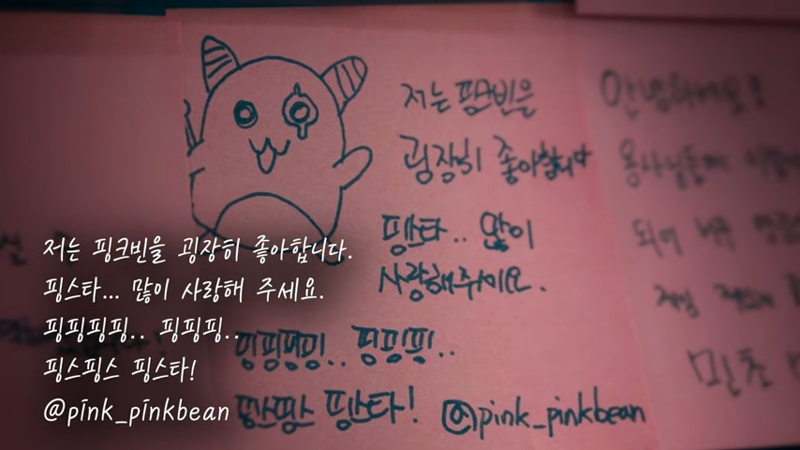 저는 핑크빈을
굉장히 좋아합니다
핑스타.. 많이
사랑해주세요.
핑핑핑핑.. 핑핑핑..
핑스핑스 핑스타! @pink_pinkbean
안녕하세요!
용사님들께
되어 너무
저는 핑크빈을 굉장히 좋아합니다.
핑스타... 많이 사랑해 주세요.
핑핑핑핑.. 핑핑핑..
핑스핑스 핑스타!
@pink_pinkbean